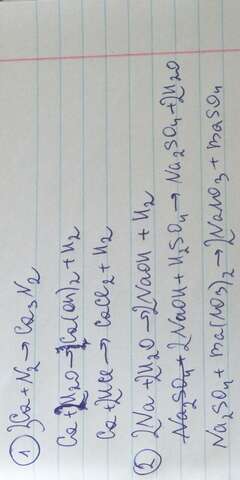 ① 3Ca + N₂ → Ca₃N₂
Ca + 2H₂O → Ca(OH)₂ + H₂
Ca + 2HCl → CaCl₂ + H₂
② 2Na + 2H₂O → 2NaOH + H₂
Na₂SO₄ + 2NaOH + H₂SO₄ → Na₂SO₄ + 2H₂O
Na₂SO₄ + Ba(NO₃)₂ → 2NaNO₃ + BaSO₄